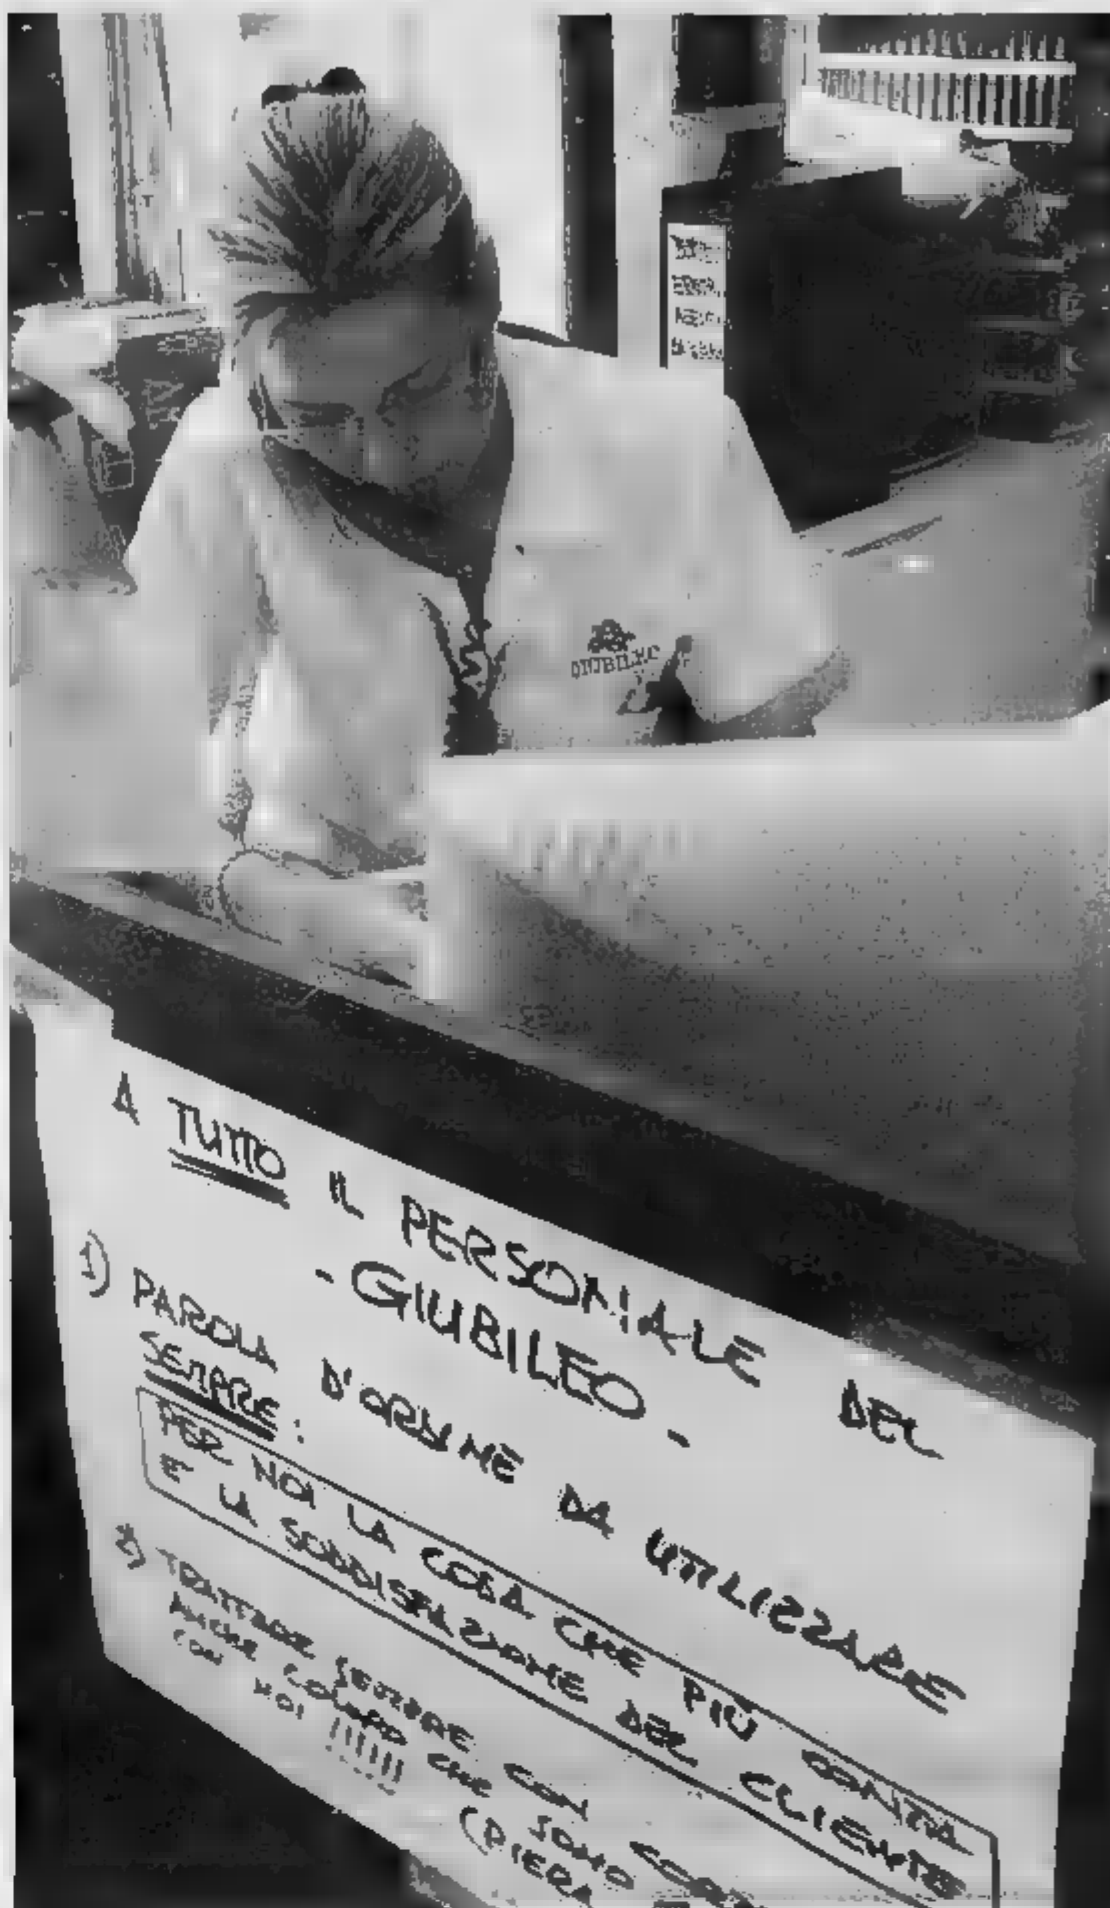 GIUBILEO
A TUTTO IL PERSONALE DEL
- GIUBILEO -
1) PAROLA D'ORDINE DA UTILIZZARE
SEMPRE:
PER NOI LA COSA CHE PIÙ CONTA
E' LA SODDISFAZIONE DEL CLIENTE
2) TRATTARE SEMPRE CON
ANCHE COLORO CHE SONO
CON NOI !!!!!!
(PIERA